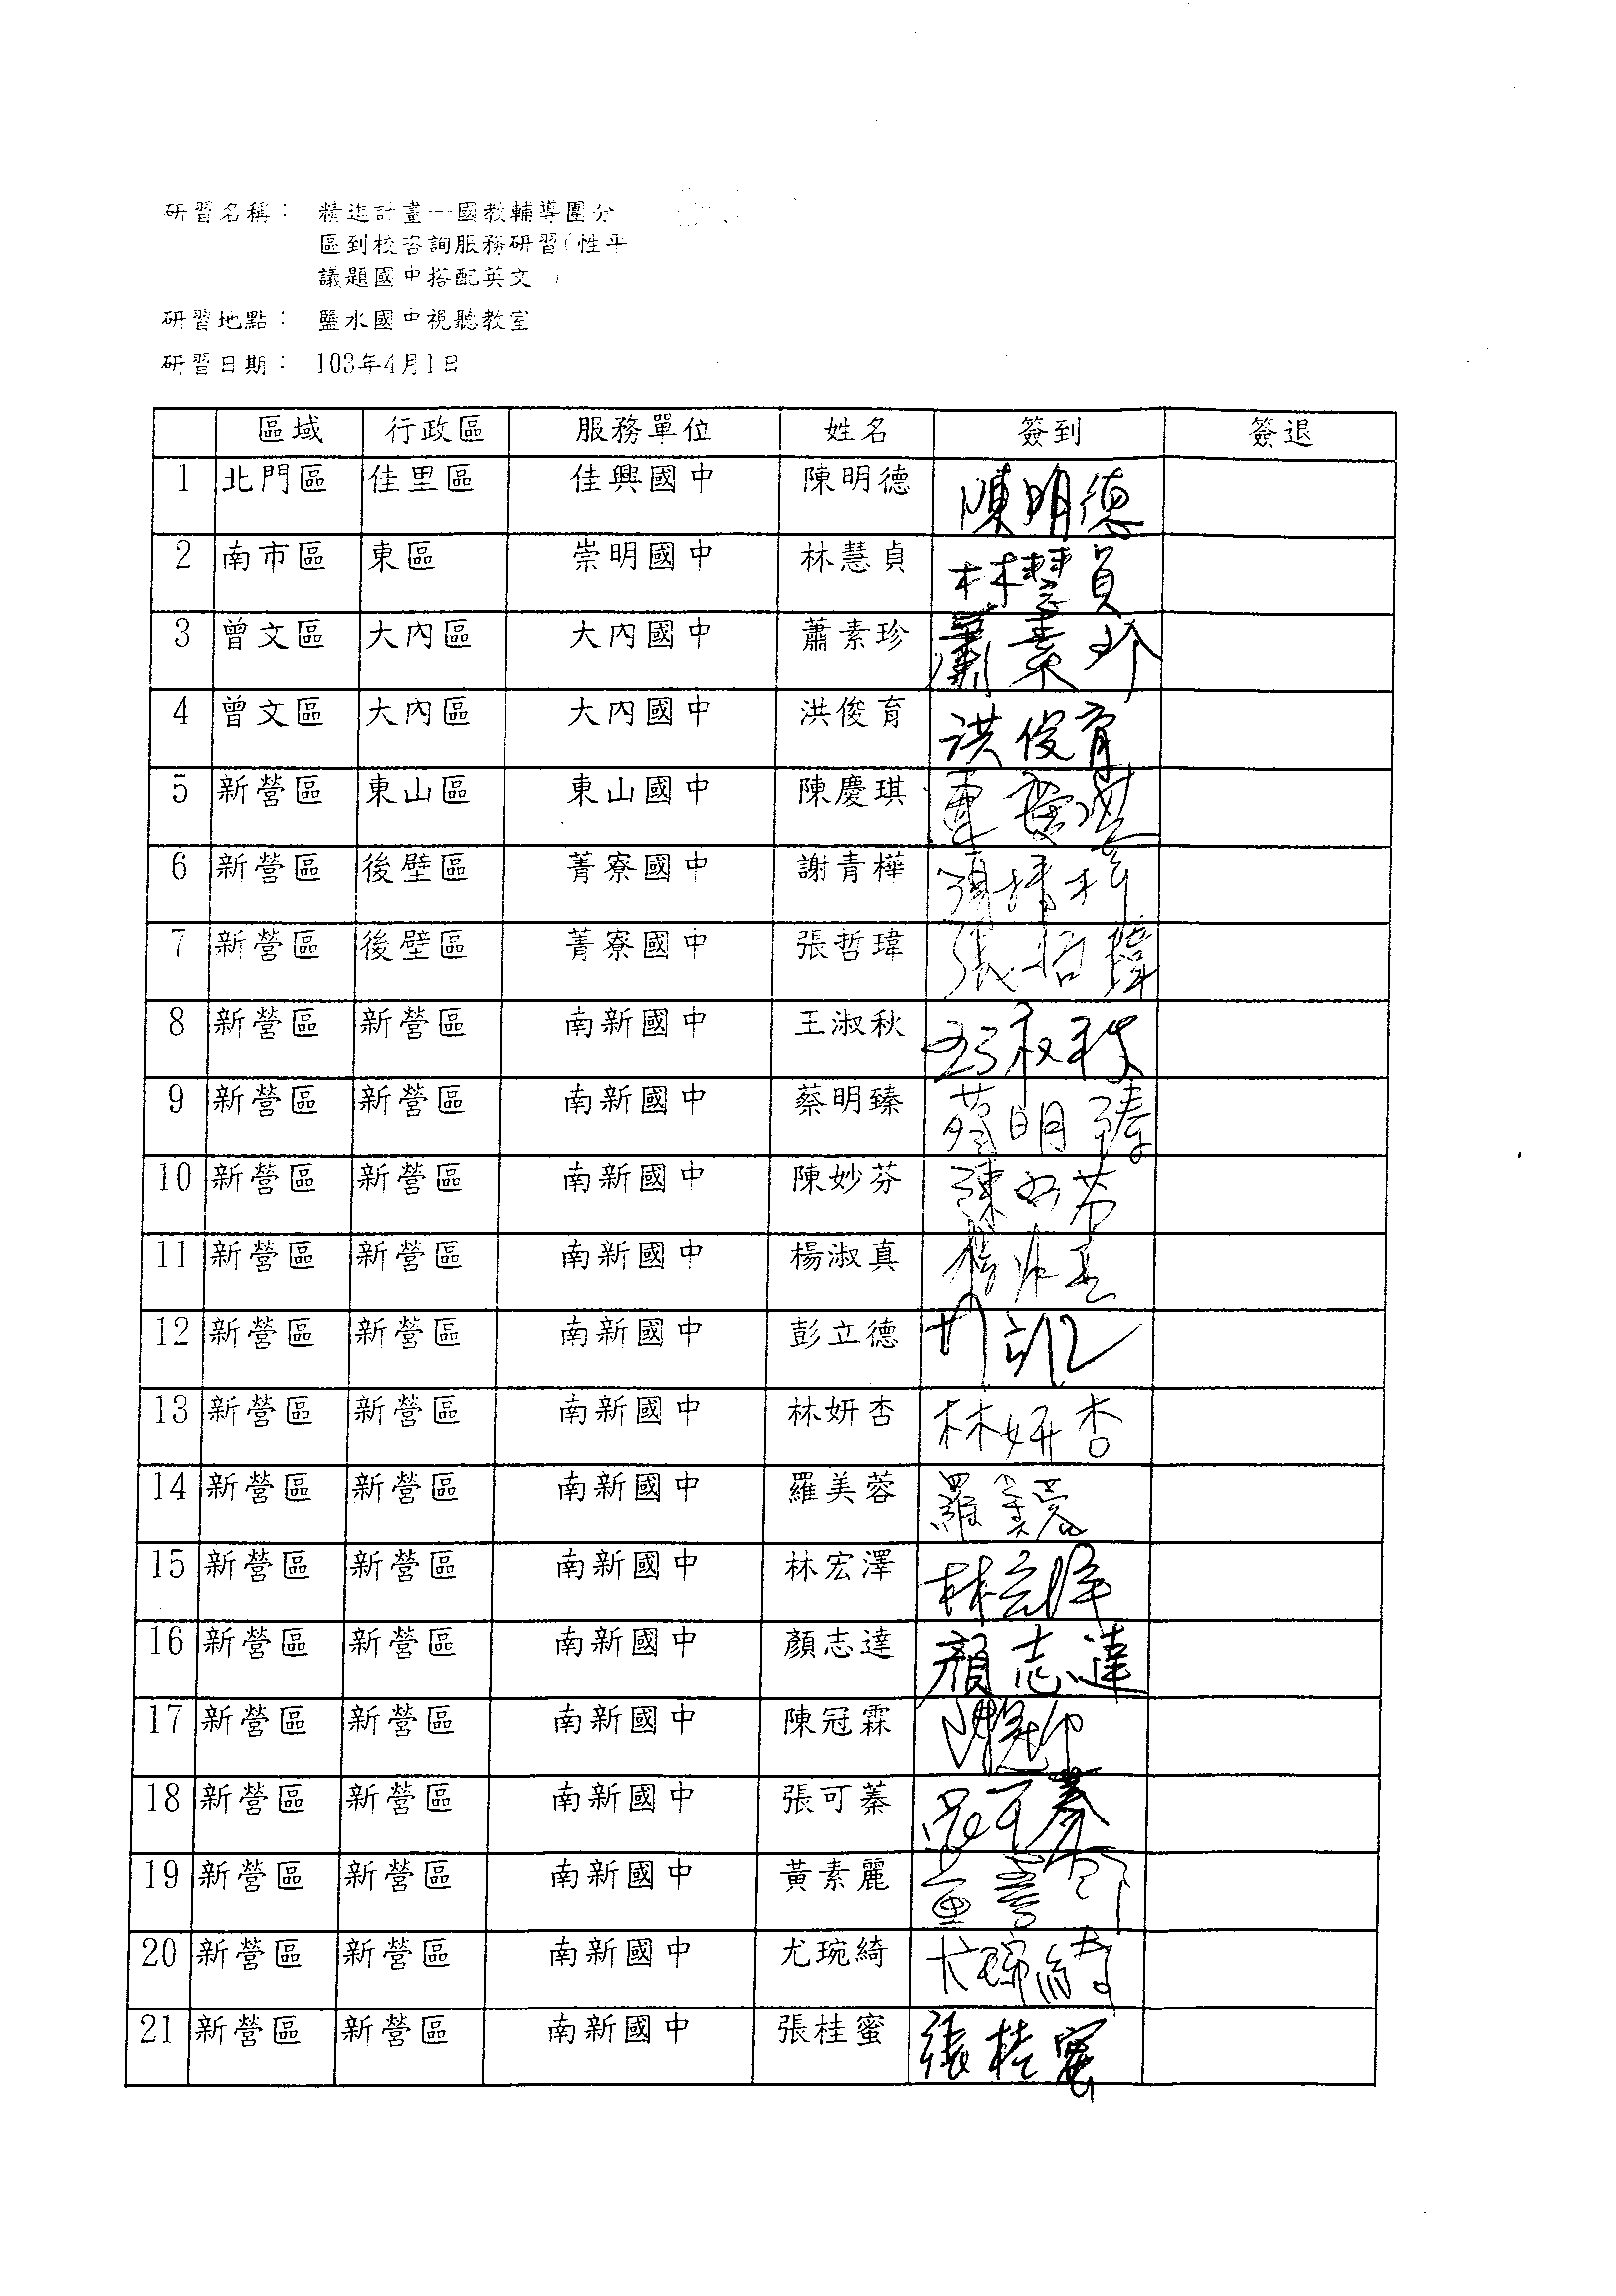 研習名稱： 精進計畫--國教輔導團分
區到校咨詢服務研習(性平
議題國中搭配英文)
研習地點： 鹽水國中視聽教室
研習日期： 103年4月1日
區域 行政區 服務單位 姓名 簽到 簽退
1 北門區 佳里區 佳興國中 陳明德 陳明德
2 南市區 東區 崇明國中 林慧貞 林慧貞
3 曾文區 大內區 大內國中 蕭素珍 蕭素珍
4 曾文區 大內區 大內國中 洪俊育 洪俊育
5 新營區 東山區 東山國中 陳慶琪 陳慶琪
6 新營區 後壁區 菁寮國中 謝青樺
7 新營區 後壁區 菁寮國中 張哲瑋 張哲瑋
8 新營區 新營區 南新國中 王淑秋 王淑秋
9 新營區 新營區 南新國中 蔡明臻 蔡明臻
10 新營區 新營區 南新國中 陳妙芬 陳妙芬
11 新營區 新營區 南新國中 楊淑真 楊淑真
12 新營區 新營區 南新國中 彭立德
13 新營區 新營區 南新國中 林妍杏 林妍杏
14 新營區 新營區 南新國中 羅美蓉 羅美蓉
15 新營區 新營區 南新國中 林宏澤 林宏澤
16 新營區 新營區 南新國中 顏志達 顏志達
17 新營區 新營區 南新國中 陳冠霖
18 新營區 新營區 南新國中 張可蓁 張可蓁
19 新營區 新營區 南新國中 黃素麗
20 新營區 新營區 南新國中 尤琬綺 尤琬綺
21 新營區 新營區 南新國中 張桂蜜 張桂蜜